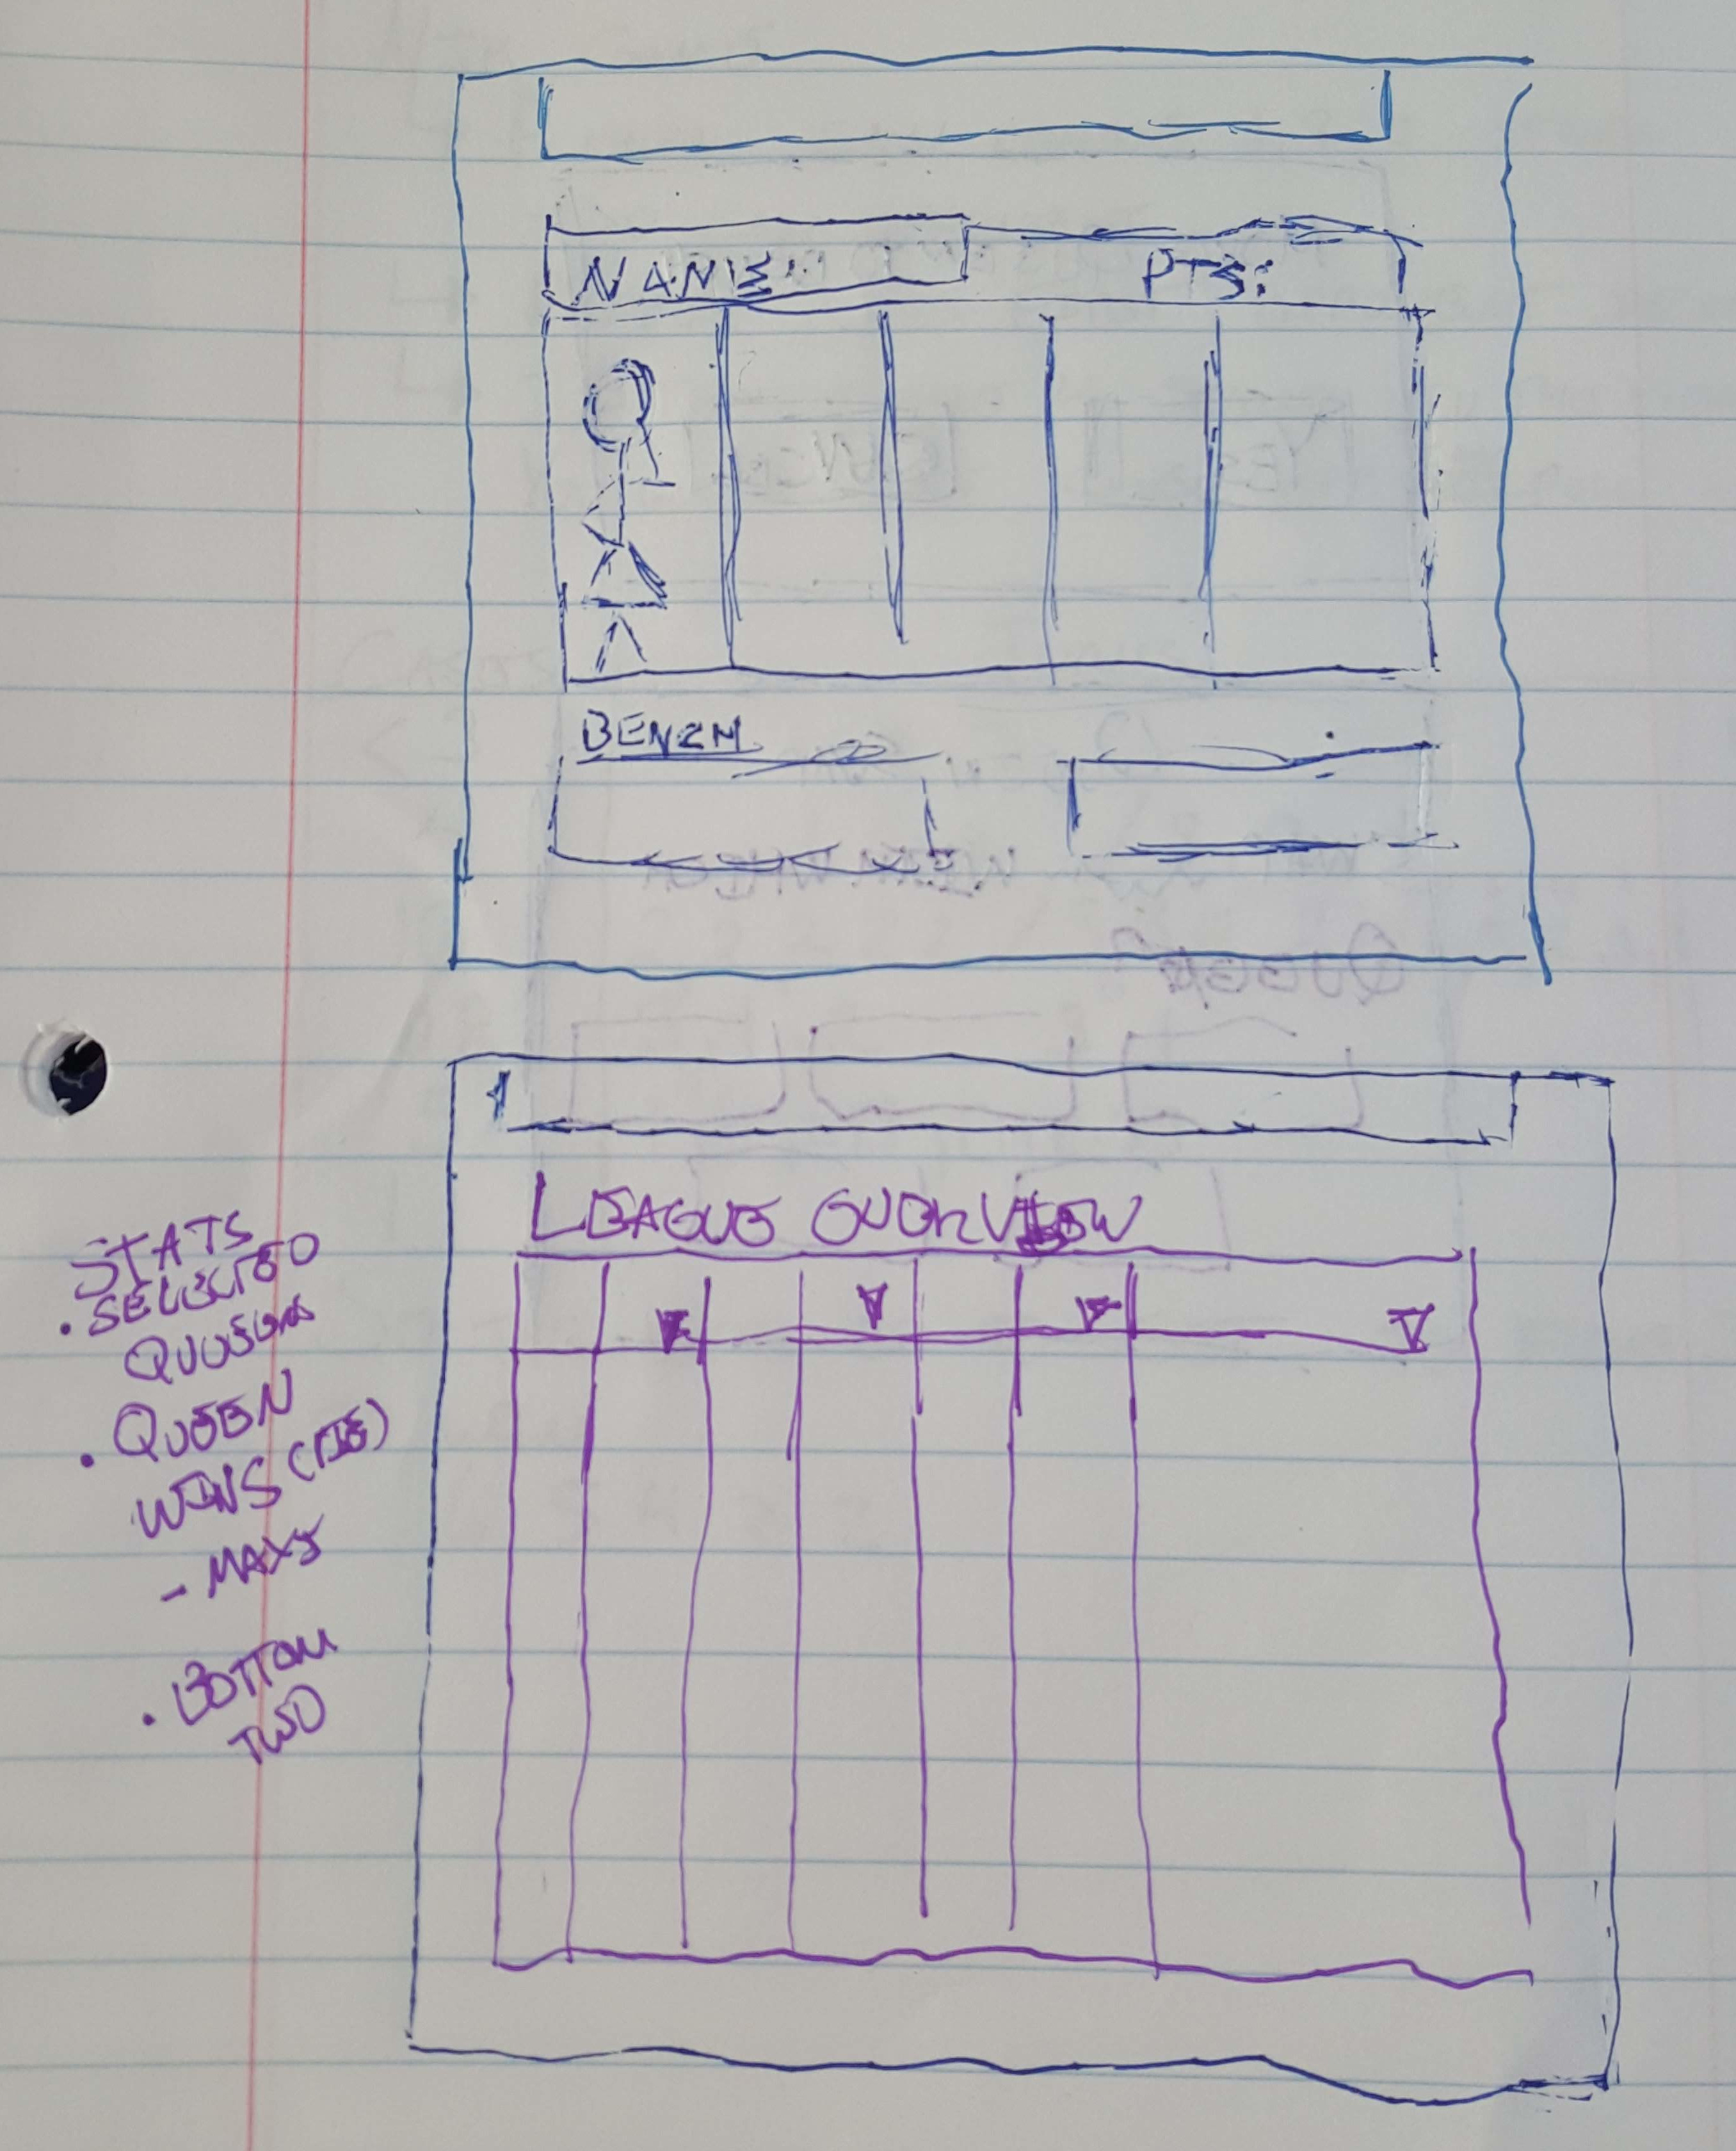 NAME:
PTS:
BENCH
LEAGUE OVERVIEW
STATS
• SELECTED
QUEENS
• QUEEN
WINS (TIE)
- MAXS
• BOTTOM
TWO
YES
QUEEN?